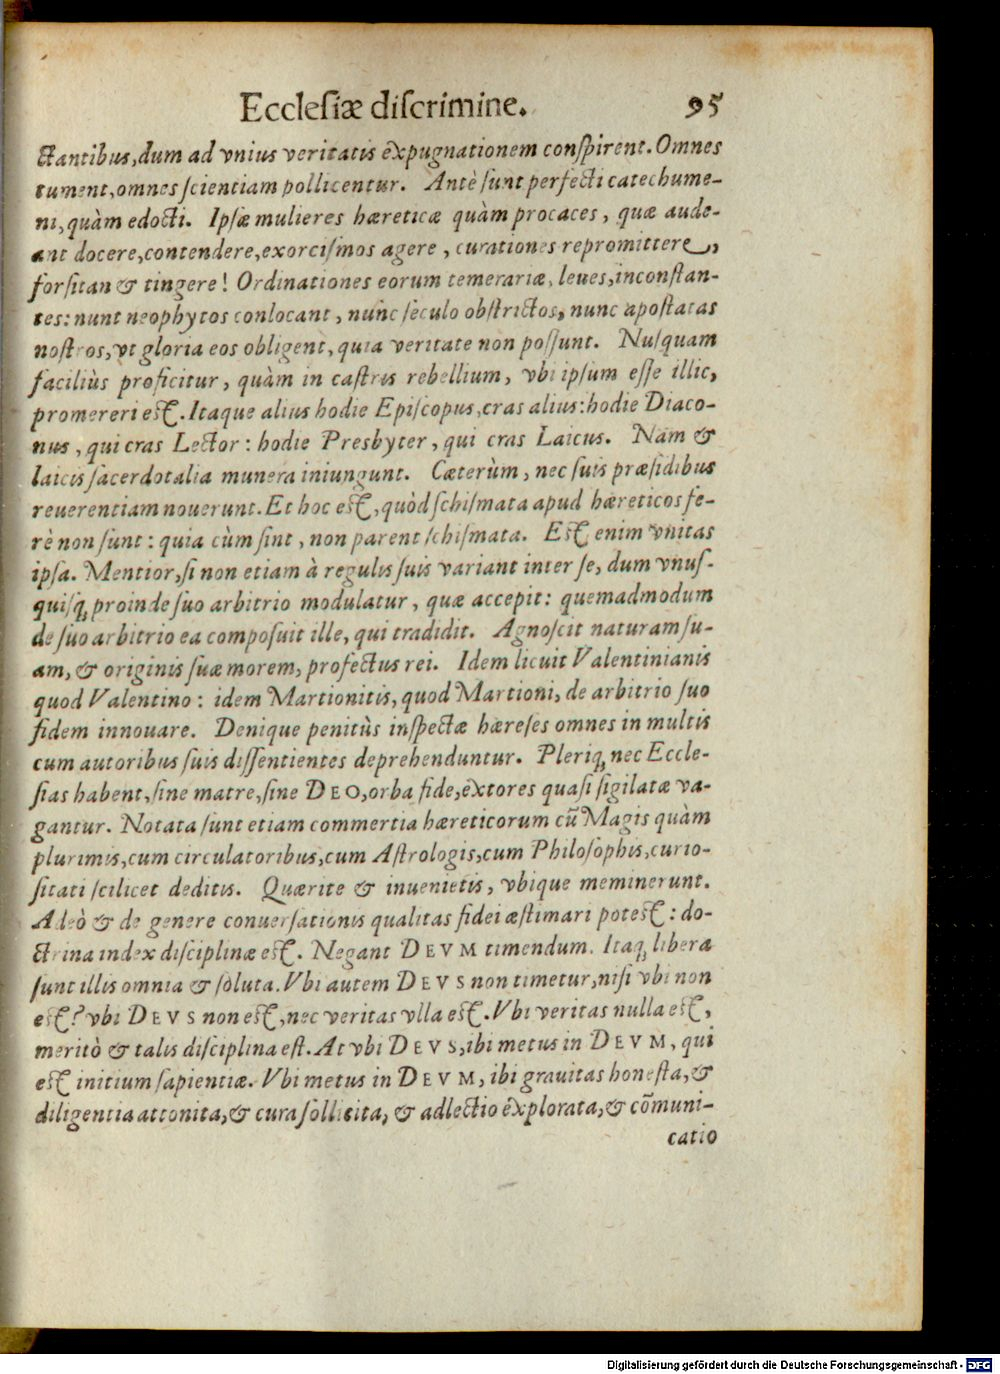 Eccleſiæ diſcrimine. 95
ctantibus, dum ad vnius veritatis expugnationem conſpirent. Omnes
tument, omnes ſcientiam pollicentur. Antè ſunt perfecti catechume-
ni, quàm edocti. Ipſæ mulieres hæreticæ quàm procaces, quæ aude-
ant docere, contendere, exorciſmos agere, curationes repromittere,
forſitan & tingere! Ordinationes eorum temerariæ, leues, inconſtan-
tes: nunt neophytos conlocant, nunc ſeculo obſtrictos, nunc apoſtatas
noſtros, vt gloria eos obligent, quia veritate non poſſunt. Nuſquam
faciliùs proficitur, quàm in caſtris rebellium, vbi ipſum eſſe illic,
promereri est. Itaque alius hodie Epiſcopus, cras alius: hodie Diaco-
nus, qui cras Lector: hodie Presbyter, qui cras Laicus. Nam &
laicis ſacerdotalia munera iniungunt. Cæterùm, nec ſuis præſidibus
reuerentiam nouerunt. Et hoc est, quòd ſchiſmata apud hæreticos fe-
rè non ſunt: quia cùm ſint, non parent ſchiſmata. Est enim vnitas
ipſa. Mentior, ſi non etiam à regulis ſuis variant inter ſe, dum vnuſ-
quiſq; proinde ſuo arbitrio modulatur, quæ accepit: quemadmodum
de ſuo arbitrio ea compoſuit ille, qui tradidit. Agnoſcit naturam ſu-
am, & originis ſuæ morem, profectus rei. Idem licuit Valentinianis
quod Valentino: idem Martionitis, quod Martioni, de arbitrio ſuo
fidem innouare. Denique penitùs inſpectæ hæreſes omnes in multis
cum autoribus ſuis diſſentientes deprehenduntur. Pleriq; nec Eccle-
ſias habent, ſine matre, ſine DEO, orba fide, extores quaſi ſigilatæ va-
gantur. Notata ſunt etiam commertia hæreticorum cũ Magis quàm
plurimis, cum circulatoribus, cum Aſtrologis, cum Philoſophis, curio-
ſitati ſcilicet deditis. Quærite & inuenietis, vbique meminerunt.
Adeò & de genere conuerſationis qualitas fidei æſtimari potest: do-
ctrina index diſciplinæ est. Negant DEVM timendum. Itaq; libera
ſunt illis omnia & ſoluta. Vbi autem DEVS non timetur, niſi vbi non
est? vbi DEVS non est, nec veritas vlla est. Vbi veritas nulla est,
meritò & talis diſciplina eſt. At vbi DEVS, ibi metus in DEVM, qui
est initium ſapientiæ. Vbi metus in DEVM, ibi grauitas honeſta, &
diligentia attonita, & cura ſollicita, & adlectio explorata, & cõmuni-
catio
Digitalisierung gefördert durch die Deutsche Forschungsgemeinschaft - DFG